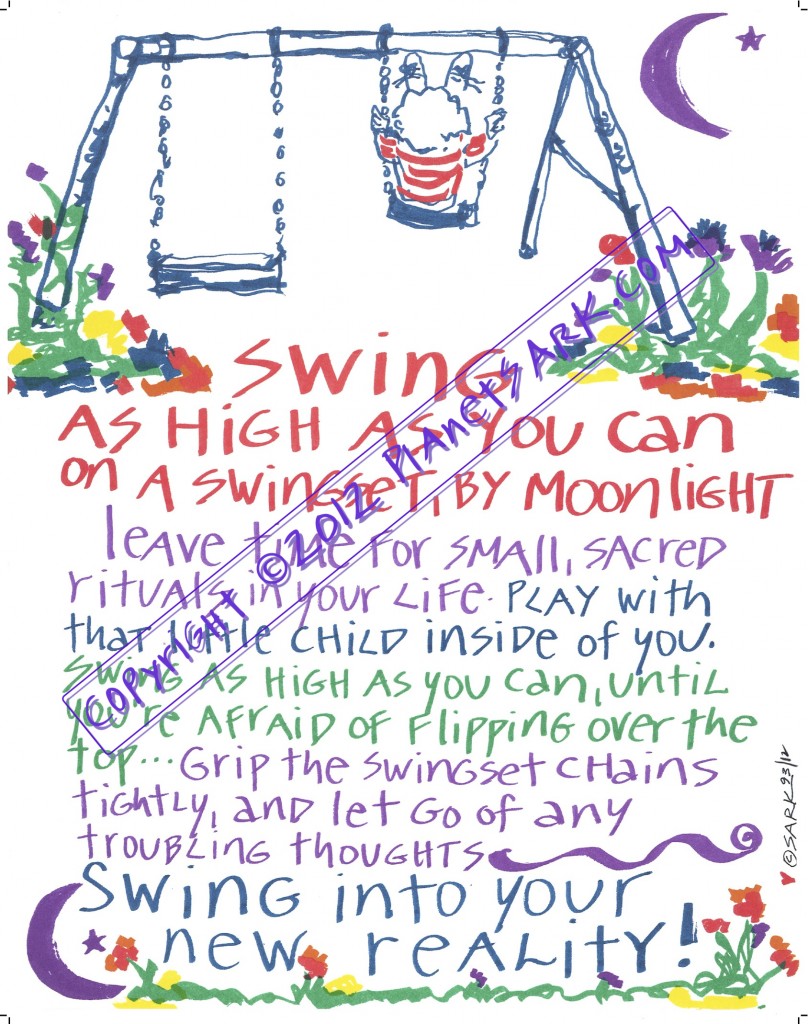 Swing
As High As you can
on A swingset, by Moonlight
leave time for small, sacred
rituals in your life. Play with
that little child inside of you.
Swing As High As you can, until
you're afraid of flipping over the
top... Grip the swingset chains
tightly, and let go of any
troubling thoughts
Swing into your
new reality!
Copyright ©2012 PlanetSark.com
©SARK 93/12